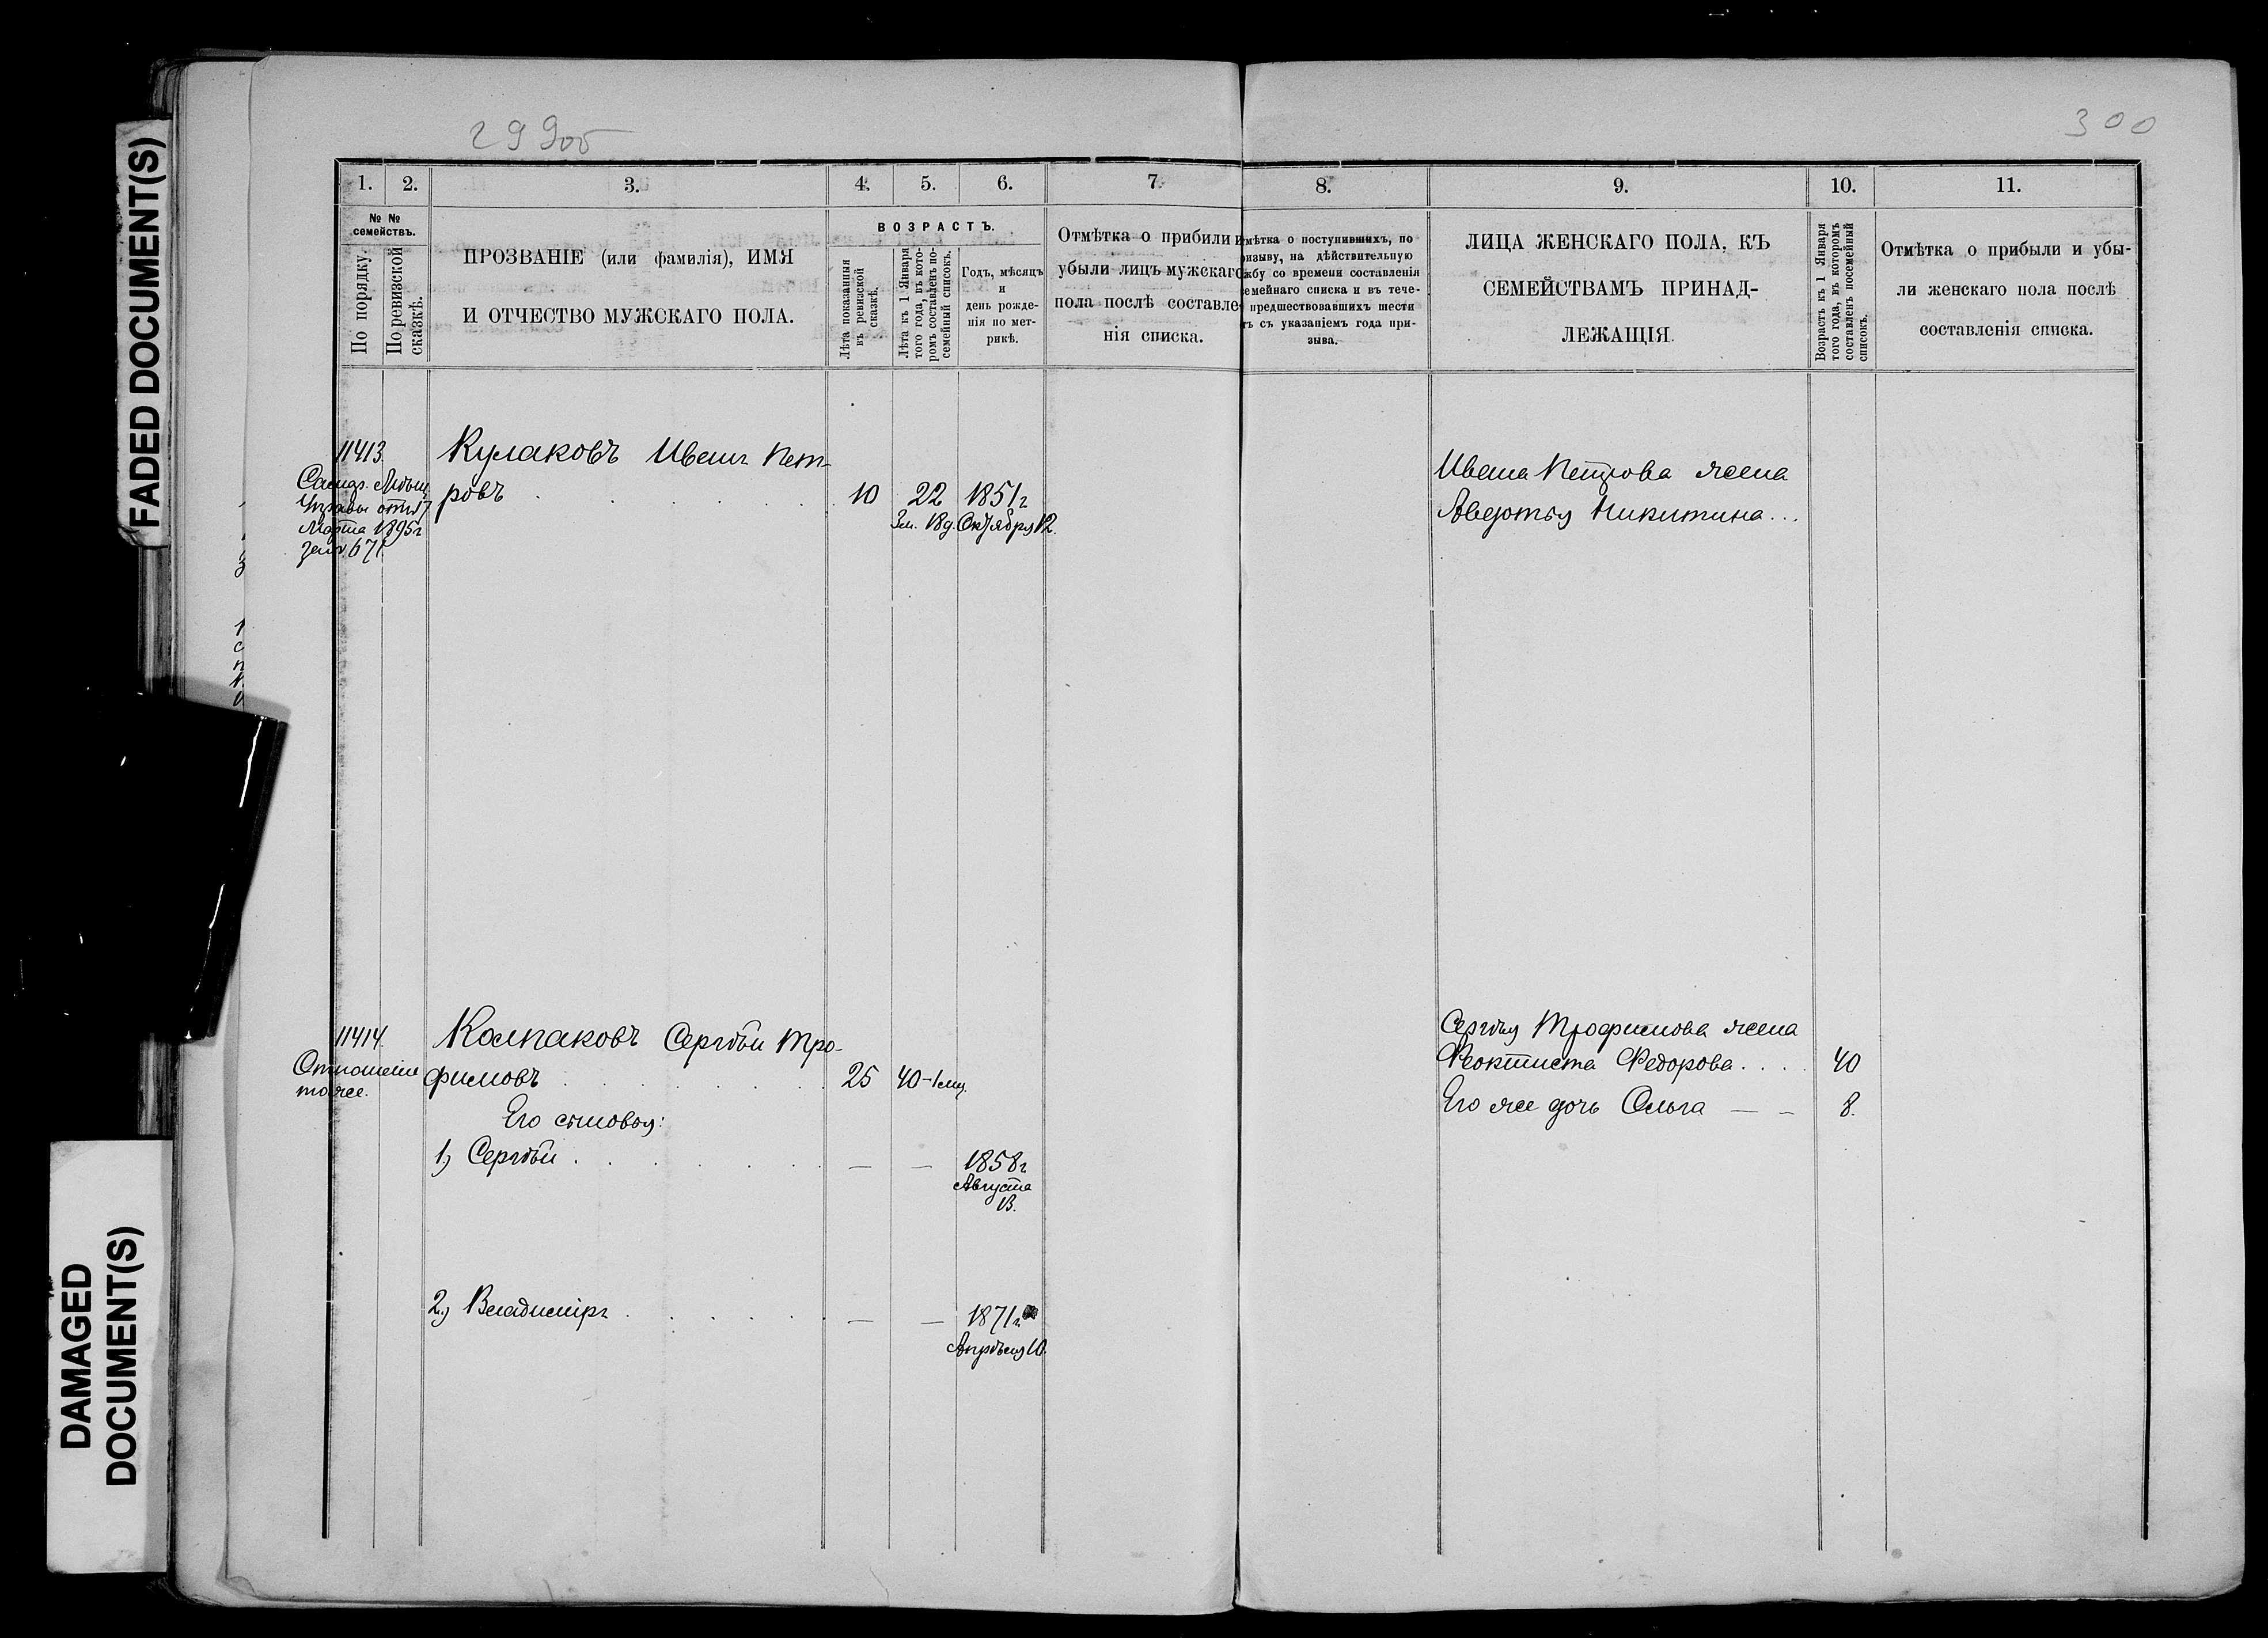 299об
300
FADED DOCUMENT(S)
DAMAGED
DOCUMENT(S)
1. 2. 3. 4. 5. 6. 7. 8. 9. 10. 11.
№ №
семействъ.
По порядку.
По ревизской
сказкѣ.
ПРОЗВАНІЕ (или фамилія), ИМЯ
И ОТЧЕСТВО МУЖСКАГО ПОЛА.
ВОЗРАСТЪ.
Лѣта показанныя
въ ревизской
сказкѣ.
Лѣта къ 1 Января
того года, въ кото-
ромъ составленъ по-
семейный списокъ.
Годъ, мѣсяцъ
и
день рожде-
нія по мет-
рикѣ.
Отмѣтка о прибыли и
убыли лицъ мужскаго
пола послѣ составле-
нія списка.
мѣтка о поступившихъ, по
изыву, на дѣйствительную
жбу со времени составленія
емейнаго списка и въ тече-
предшествовавшихъ шести
ъ съ указаніемъ года при-
зыва.
ЛИЦА ЖЕНСКАГО ПОЛА, КЪ
СЕМЕЙСТВАМЪ ПРИНАД-
ЛЕЖАЩІЯ.
Возрастъ къ 1 Января
того года, въ которомъ
составленъ посемейный
списокъ.
Отмѣтка о прибыли и убы-
ли женскаго пола послѣ
составленія списка.
11413. Кулаковъ Иванъ Пет-
ровъ . . . . . . 10 22 1851г
3м. 18д. Октября 12.
Мѣщ.
Управы отъ 17
Марта 1895г
за № 671.
Ивана Петрова жена
Авдотья Никитина...
11414. Колпаковъ Сергѣй Тро-
фимовъ . . . . . . 25 40-1мц
Отношеніе
тоже.
Его сыновья:
1) Сергѣй . . . . . . — — 1858г
Августа
13.
2) Владиміръ . . . . . . — — 1871г
Апрѣля 10.
Сергѣя Трофимова жена
Феоктиста Федорова . . . . 40
Его же дочь Ольга — — 8.